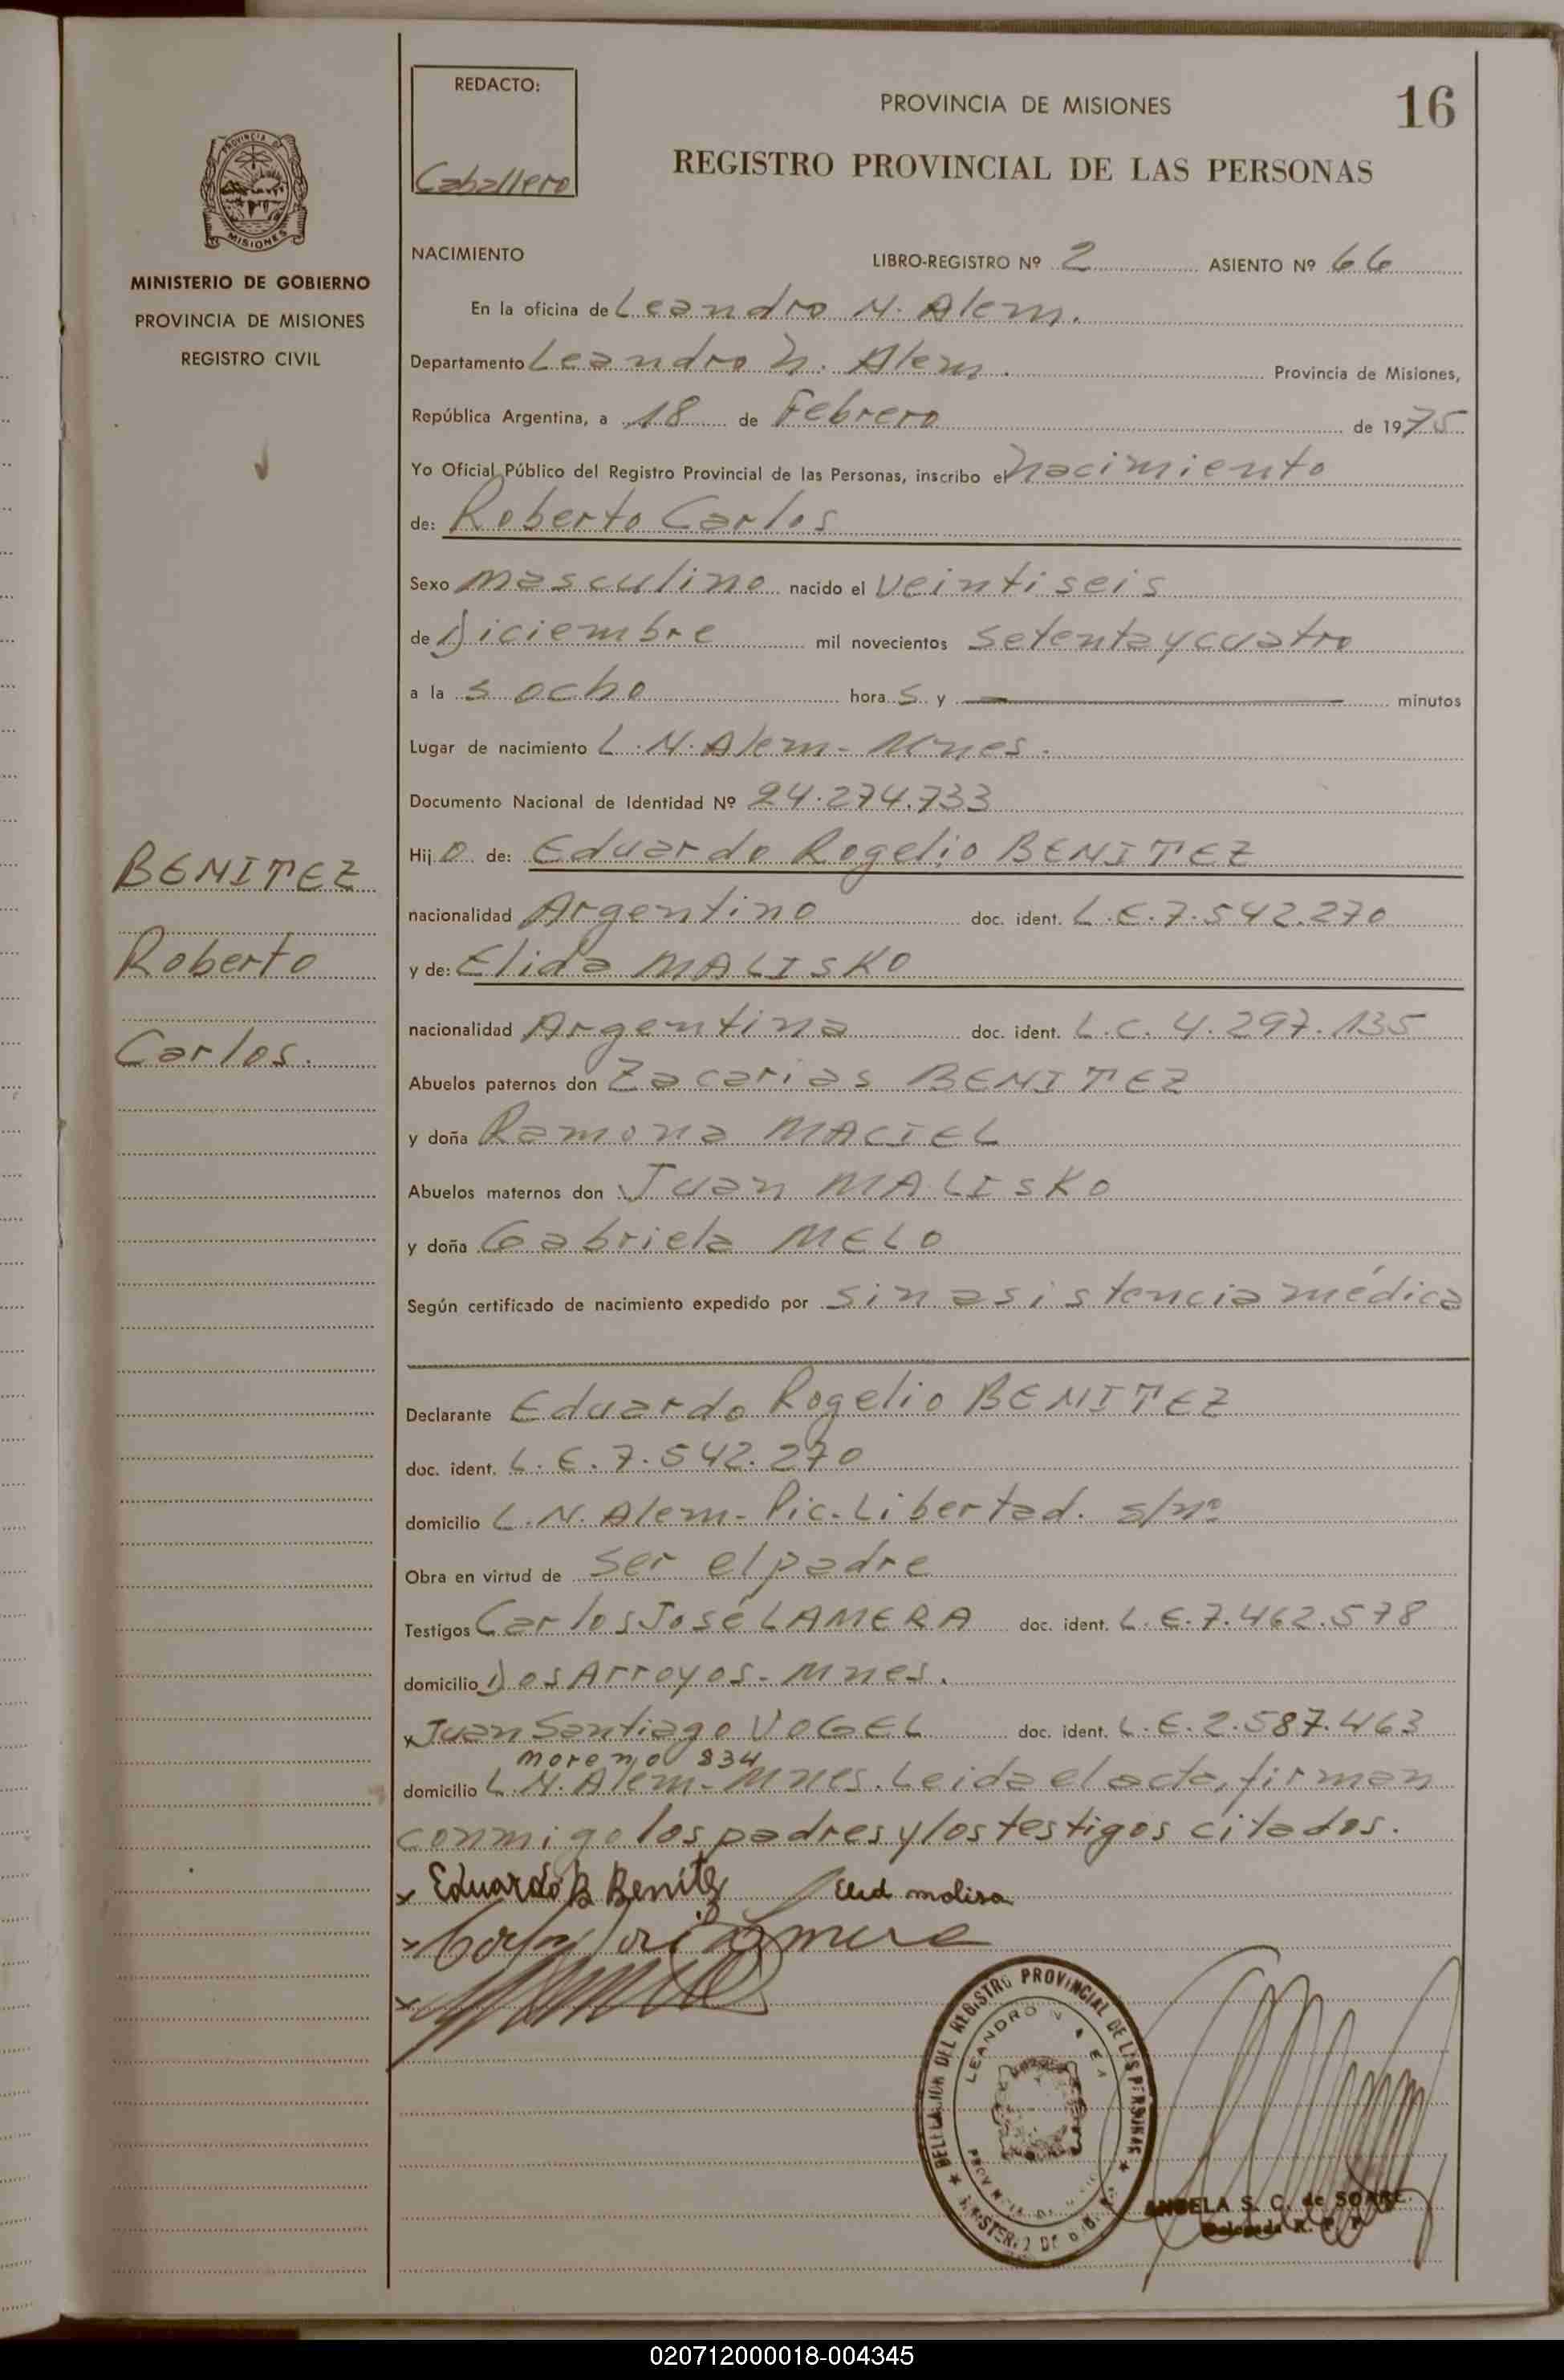 REDACTO:
Caballero
PROVINCIA DE MISIONES
16
REGISTRO PROVINCIAL DE LAS PERSONAS
PROVINCIA DE
MISIONES
MINISTERIO DE GOBIERNO
PROVINCIA DE MISIONES
REGISTRO CIVIL
NACIMIENTO LIBRO-REGISTRO Nº 2 ASIENTO Nº 66
En la oficina de Leandro N. Alem.
Departamento Leandro N. Alem. Provincia de Misiones,
República Argentina, a 18 de Febrero de 1975
Yo Oficial Público del Registro Provincial de las Personas, inscribo el nacimiento
de: Roberto Carlos
Sexo masculino nacido el veintiseis
de Diciembre mil novecientos setenta y cuatro
a la s ocho hora s y — minutos
Lugar de nacimiento L.N. Alem - Mnes.
Documento Nacional de Identidad Nº 24.274.733
Hij o de: Eduardo Rogelio BENITEZ
nacionalidad Argentino doc. ident. L.E. 7.542.270
y de: Elida MALISKO
nacionalidad Argentina doc. ident. L.C. 4.297.135
Abuelos paternos don Zacarias BENITEZ
y doña Ramona MACIEL
Abuelos maternos don Juan MALISKO
y doña Gabriela MELO
Según certificado de nacimiento expedido por sin asistencia médica
BENITEZ
Roberto
Carlos.
Declarante Eduardo Rogelio BENITEZ
doc. ident. L.E. 7.542.270
domicilio L.N. Alem - Pic. Libertad. s/nº
Obra en virtud de ser el padre
Testigos Carlos José LAMERA doc. ident. L.E. 7.462.578
domicilio Dos Arroyos - Mnes.
x Juan Santiago VOGEL doc. ident. L.E. 2.587.463
moreno 834
domicilio L.N. Alem - Mnes. Leida el acta, firman
conmigo los padres y los testigos citados.
x Eduardo R Benitez
x
x
DELEGACION DEL REGISTRO PROVINCIAL DE LAS PERSONAS
LEANDRO N
MINISTERIO DE
ANGELA S. C. de
Delegada R. P. P.
020712000018-004345